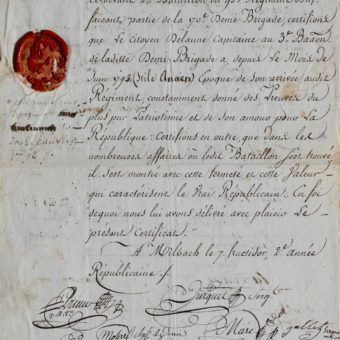 faisant partie de la 170e. Demi-Brigade, certifions
que Le Citoyen Delaune Capitaine au 3e. Baaon
de laditte Demi-Brigade a depuis Le Mois de
Juin 1792 (Stile Ancien) Epoque de son arrivée audit
Régiment, constamment donné des Preuves du
plus pur Patriotisme et de son amour pour La
République: Certifions en outre, que dans les
nombreuses affaires ou ledit Bataillon s'est trouvé
il s'est montré avec cette fermeté et cette Valeur
qui caractérisent le vrai Républicain. En foi
de quoi nous lui avons délivré avec plaisir Le
présent Certificat.
A Milbach le 7. fructidor, 2e. année
Républicaine
Turquel Sergt.
Marc